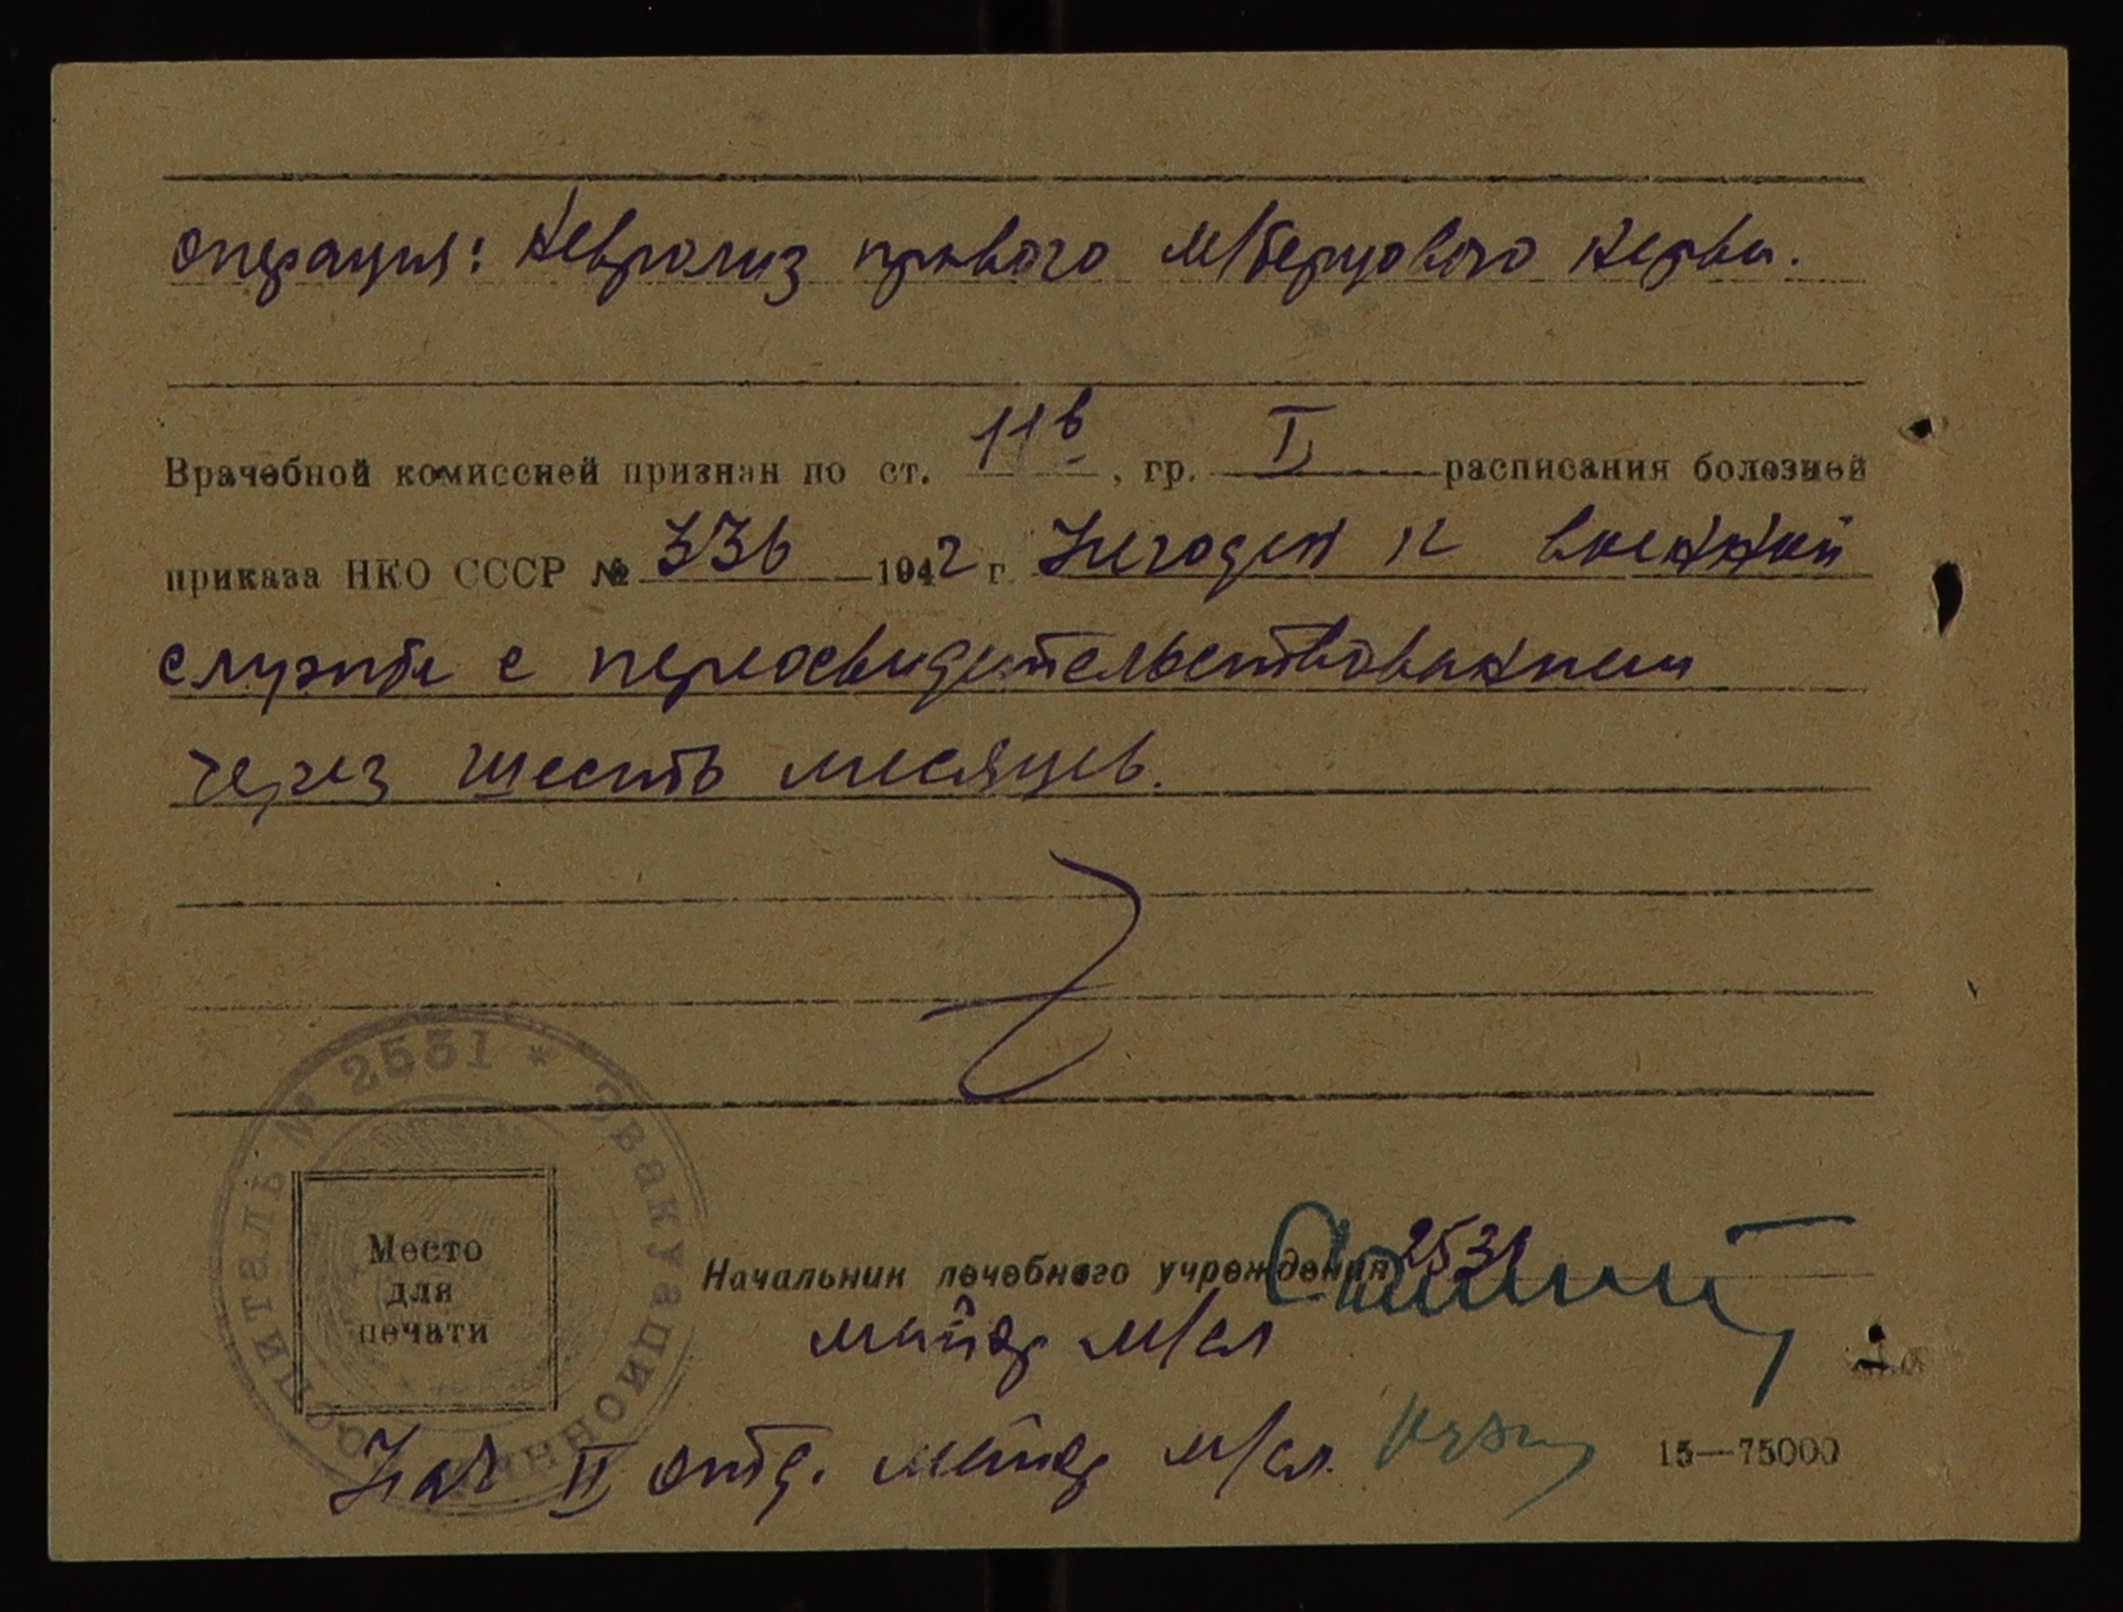 операция: Невролиз правого м/берцового нерва.
Врачебной комиссией признан по ст. 11в, гр. I расписания болезней
приказа НКО СССР № 336 1942 г. Негоден к военной
службе с переосвидетельствованием
через шесть месяцев.
Эвакуационный госпиталь № 2531 *
Место
для
печати
Начальник лечебного учреждения 2531
майор м/сл
Нач II отд. майор м/сл.
15—75000